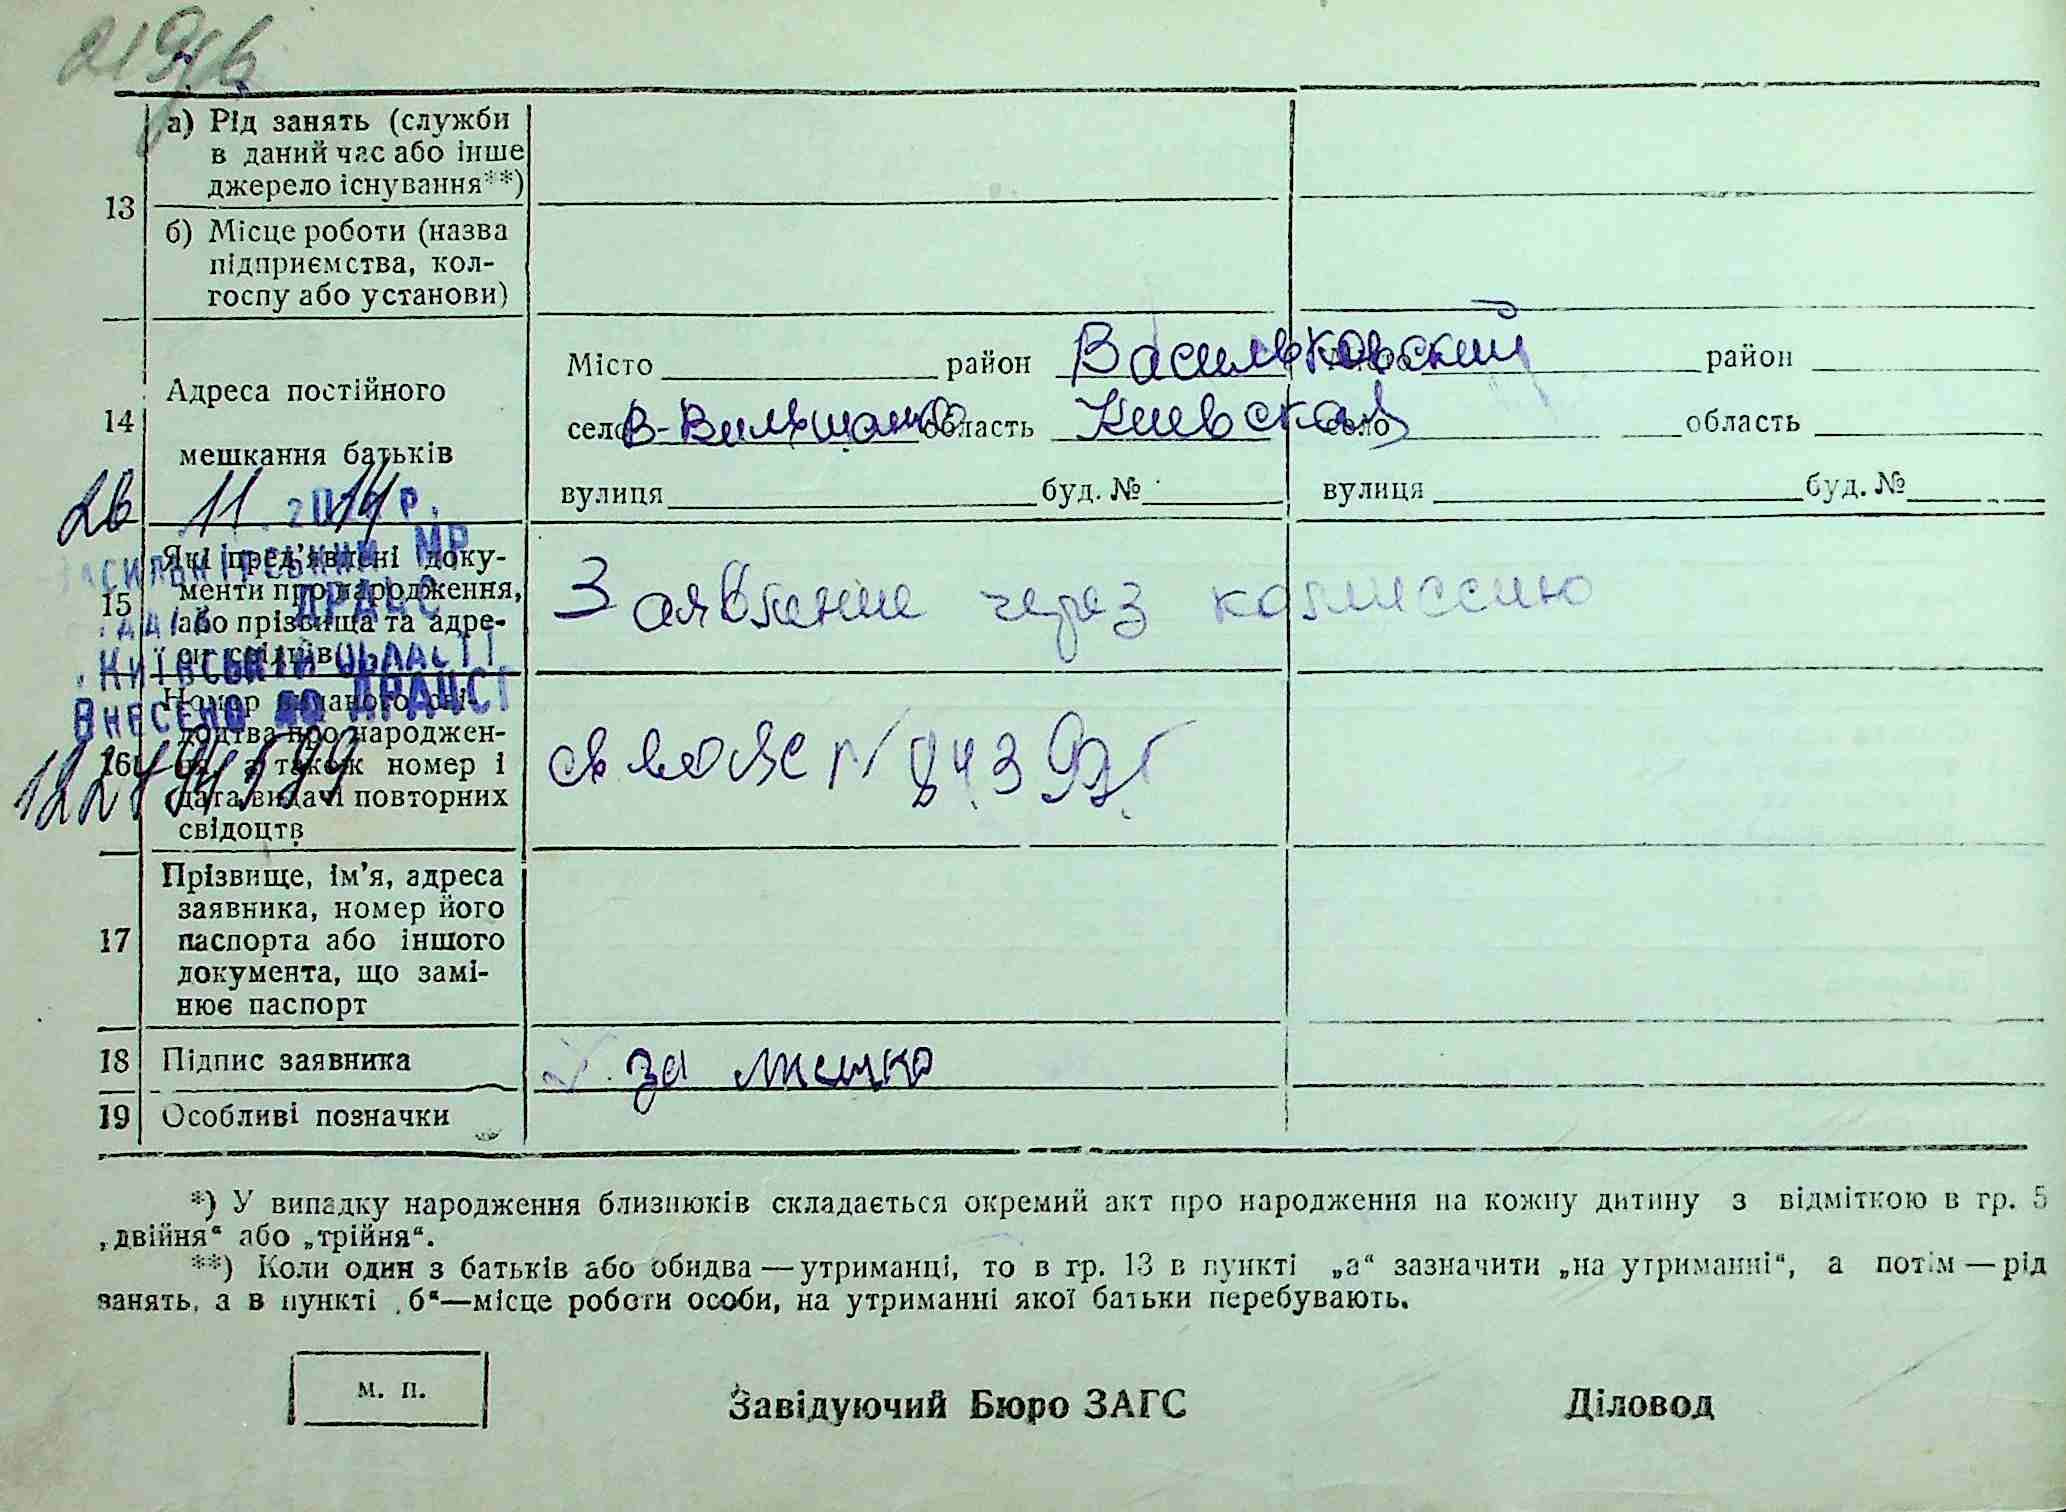 219 зв
13
а) Рід занять (служби
в даний час або інше
джерело існування**)
б) Місце роботи (назва
підприємства, кол-
госпу або установи)
14
Адреса постійного
мешкання батьків
Місто район Васильковский район
село В-Вильшанка область Киевская село область
вулиця буд. № вулиця буд. №
26 11 2014 р.
МР
ДРАЦС
Київській області
Внесено до ДРАЦСГ
15
Які пред'явлені доку-
менти про народження,
або прізвища та адре-
си свідків
Заявление через комиссию
16
Номер виданого сві-
доцтва про народжен-
ня, а також номер і
дата видачі повторних
свідоцтв
17
Прізвище, ім'я, адреса
заявника, номер його
паспорта або іншого
документа, що замі-
нює паспорт
18 Підпис заявника за
19 Особливі позначки
*) У випадку народження близнюків складається окремий акт про народження на кожну дитину з відміткою в гр. 5
„двійня“ або „трійня“.
**) Коли один з батьків або обидва — утриманці, то в гр. 13 в пункті „а“ зазначити „на утриманні“, а потім — рід
занять, а в пункті „б“—місце роботи особи, на утриманні якої батьки перебувають.
м. п.
Завідуючий Бюро ЗАГС Діловод